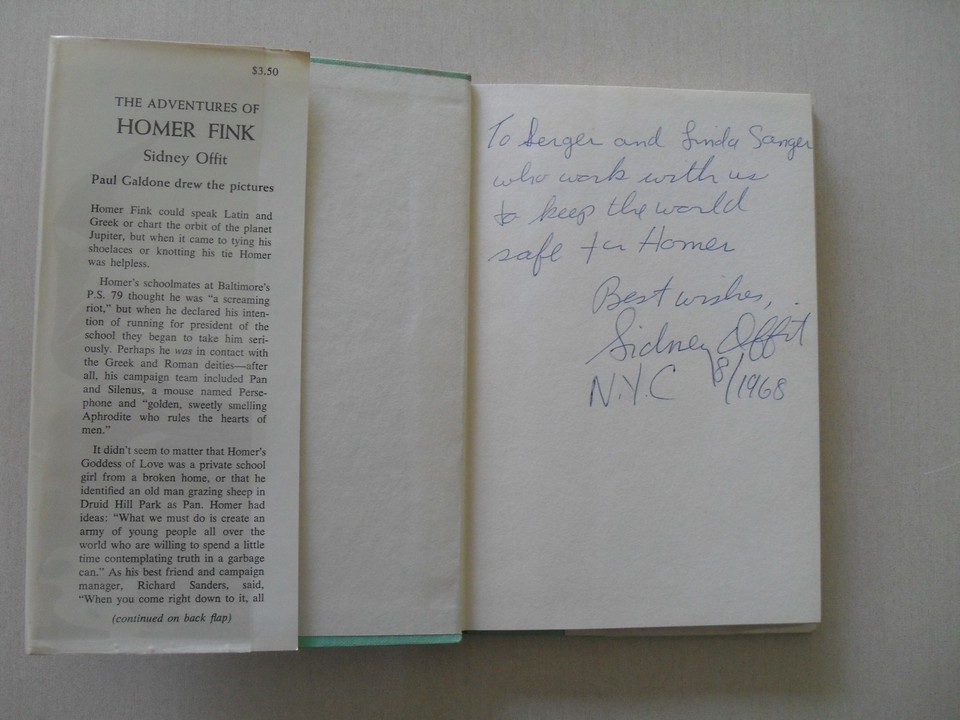 $3.50
THE ADVENTURES OF
HOMER FINK
Sidney Offit
Paul Galdone drew the pictures
Homer Fink could speak Latin and
Greek or chart the orbit of the planet
Jupiter, but when it came to tying his
shoelaces or knotting his tie Homer
was helpless.
Homer's schoolmates at Baltimore's
P.S. 79 thought he was “a screaming
riot,” but when he declared his inten-
tion of running for president of the
school they began to take him seri-
ously. Perhaps he was in contact with
the Greek and Roman deities—after
all, his campaign team included Pan
and Silenus, a mouse named Perse-
phone and “golden, sweetly smelling
Aphrodite who rules the hearts of
men.”
It didn't seem to matter that Homer's
Goddess of Love was a private school
girl from a broken home, or that he
identified an old man grazing sheep in
Druid Hill Park as Pan. Homer had
ideas: “What we must do is create an
army of young people all over the
world who are willing to spend a little
time contemplating truth in a garbage
can.” As his best friend and campaign
manager, Richard Sanders, said,
“When you come right down to it, all
(continued on back flap)
To Serger and Linda Sanger
who work with us
to keep the world
safe for Homer
Best wishes,
Sidney Offit
N.Y.C 8/1968